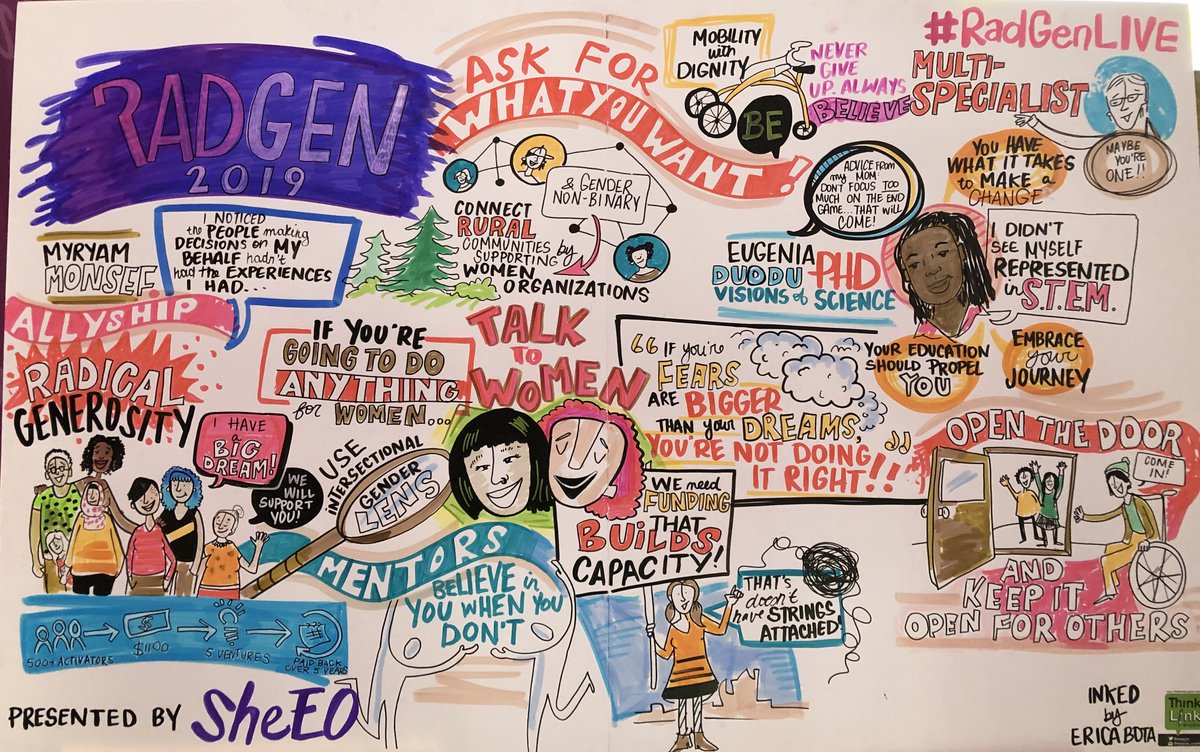 RADGEN
2019
ASK FOR
WHAT YOU WANT!
MOBILITY
with
DIGNITY
BE
NEVER
GIVE
UP. ALWAYS
BELIEVE
#RadGenLIVE
MULTI-
SPECIALIST
MAYBE
YOU'RE
ONE!!
YOU HAVE
WHAT IT TAKES
to MAKE a
CHANGE
MYRYAM
MONSEF
I NOTICED
the PEOPLE making
DECISIONS on MY
BEHALF hadn't
had the EXPERIENCES
I HAD...
& GENDER
NON-BINARY
CONNECT
RURAL
COMMUNITIES by
SUPPORTING
WOMEN
ORGANIZATIONS
ADVICE from
my MOM:
DON'T FOCUS TOO
MUCH ON THE END
GAME...THAT WILL
COME!
EUGENIA
DUODU PHD
VISIONS of SCIENCE
I DIDN'T
SEE MYSELF
REPRESENTED
in S.T.E.M.
YOUR EDUCATION
SHOULD PROPEL
YOU
EMBRACE
your
JOURNEY
ALLYSHIP
RADICAL
GENEROSITY
I HAVE
a
BIG
DREAM!
WE
WILL
SUPPORT
YOU!
IF YOU'RE
GOING TO DO
ANYTHING
for WOMEN...
TALK
to
WOMEN
USE
INTERSECTIONAL
GENDER
LENS
"IF you're
FEARS
ARE BIGGER
THAN your DREAMS,
YOU'RE NOT DOING
IT RIGHT!!"
MENTORS
BELIEVE in
YOU WHEN YOU
DON'T
WE need
FUNDING
THAT
BUILDS
CAPACITY!
THAT'S
doesn't
have STRINGS
ATTACHED!
OPEN THE DOOR
COME
IN!
AND
KEEP IT
OPEN FOR OTHERS
500+ ACTIVATORS
$1100
5 VENTURES
PAID BACK
OVER 5 YEARS
PRESENTED BY SheEO
INKED
by
ERICA BOTA
Think
Link